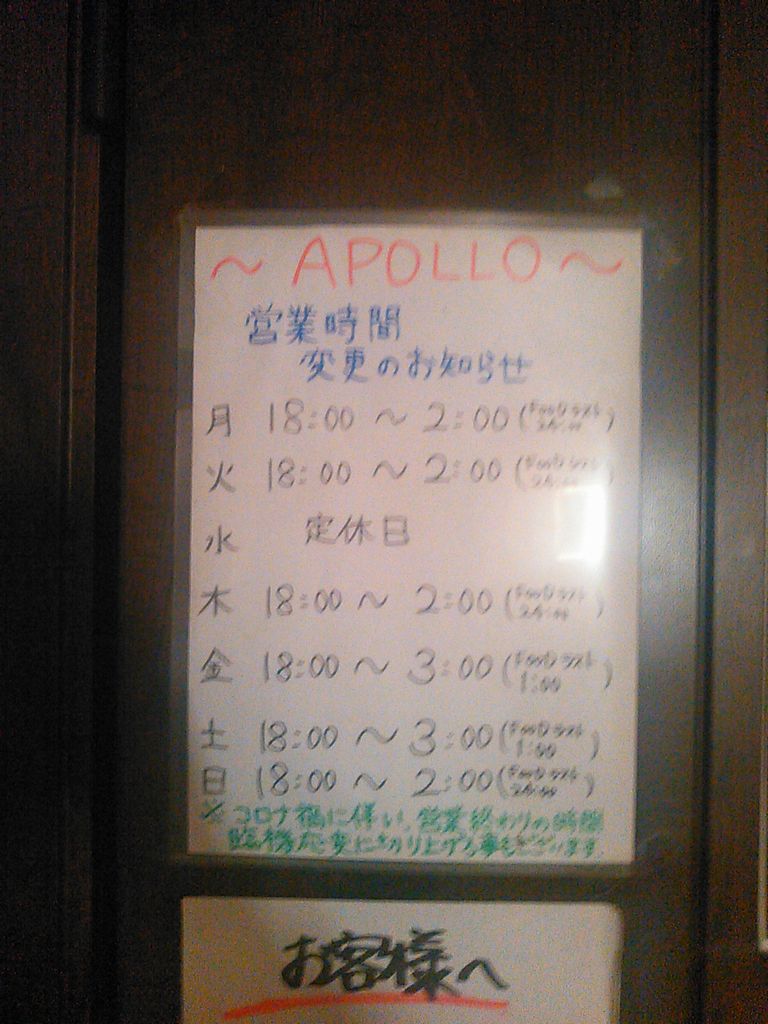 ～ APOLLO ～
営業時間
変更のお知らせ
月 18:00 ～ 2:00 (FOOD ラスト 24:00)
火 18:00 ～ 2:00 (FOOD ラスト 24:00)
水 定休日
木 18:00 ～ 2:00 (FOOD ラスト 24:00)
金 18:00 ～ 3:00 (FOOD ラスト 1:00)
土 18:00 ～ 3:00 (FOOD ラスト 1:00)
日 18:00 ～ 2:00 (FOOD ラスト 24:00)
※コロナ禍に伴い、営業終わりの時間
臨機応変に切り上げる事もございます。
お客様へ